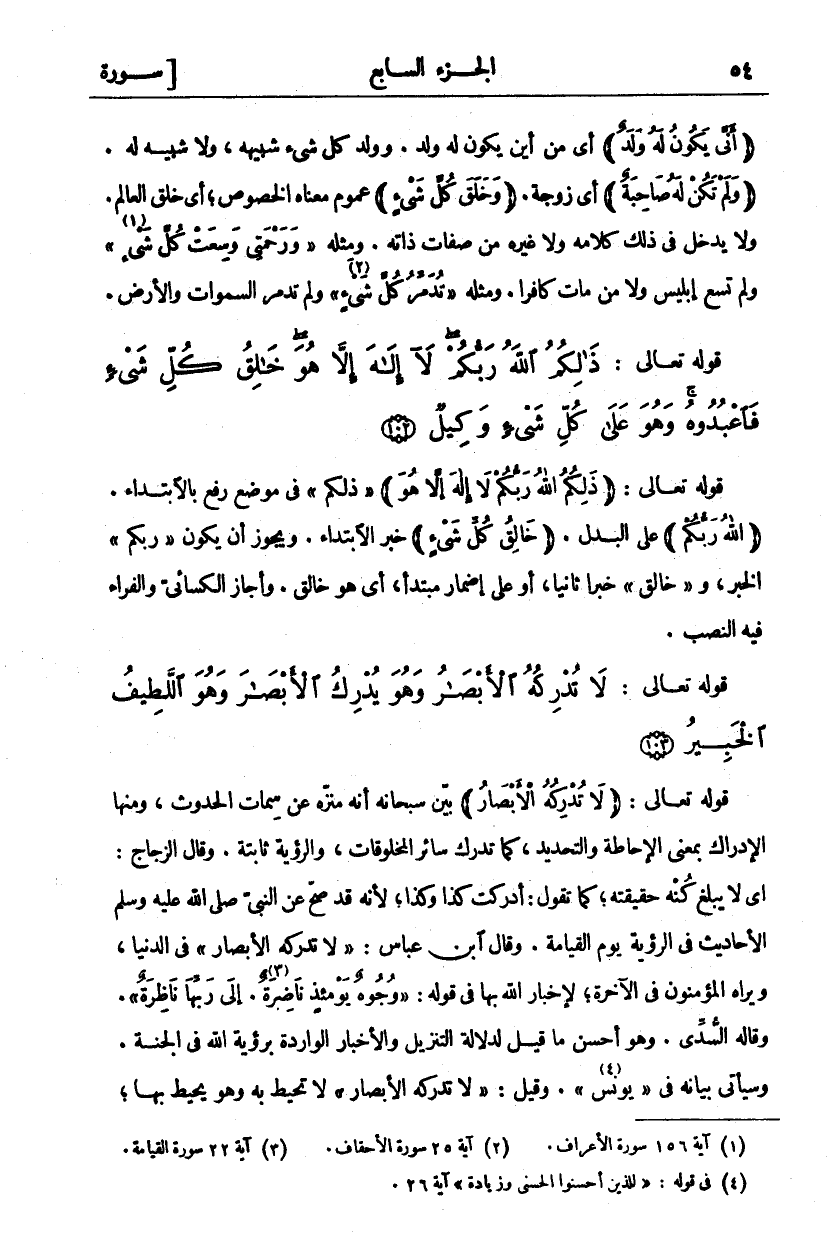 ٥٤ الجـزء السـابع [ سـورة
﴿ أَنَّى يَكُونُ لَهُ وَلَدٌ ﴾ أى من أين يكون له ولد . وولد كل شىء شبيهه ، ولا شبيـه له .
﴿ وَلَمْ تَكُنْ لَهُ صَاحِبَةٌ ﴾ أى زوجة . ﴿ وَخَلَقَ كُلَّ شَيْءٍ ﴾ عموم معناه الخصوص ؛ أى خلق العالم .
ولا يدخل فى ذلك كلامه ولا غيره من صفات ذاته . ومثله « وَرَحْمَتِي وَسِعَتْ كُلَّ شَيْءٍ (١) »
ولم تسع إبليس ولا من مات كافرا . ومثله « تُدَمِّرُ كُلَّ شَيْءٍ (٢) » ولم تدمر السموات والأرض .
قوله تعـالى : ذَٰلِكُمُ ٱللَّهُ رَبُّكُمْ ۖ لَآ إِلَـٰهَ إِلَّا هُوَ ۖ خَـٰلِقُ كُلِّ شَىْءٍ
فَٱعْبُدُوهُ ۚ وَهُوَ عَلَىٰ كُلِّ شَىْءٍ وَكِيلٌ ١٠٢
قوله تعـالى : ﴿ ذَلِكُمُ اللهُ رَبُّكُمْ لَا إِلَهَ إِلَّا هُوَ ﴾ « ذلكم » فى موضع رفع بالآبتـداء .
﴿ اللهُ رَبُّكُمْ ﴾ على البـدل . ﴿ خَالِقُ كُلِّ شَيْءٍ ﴾ خبر الآبتداء . ويجوز أن يكون « ربكم »
الخبر ، و « خالق » خبرا ثانيا ، أو على إضمار مبتدأ ، أى هو خالق . وأجاز الكسائىّ والفراء
فيه النصب .
قوله تعـالى : لَا تُدْرِكُهُ ٱلْأَبْصَـٰرُ وَهُوَ يُدْرِكُ ٱلْأَبْصَـٰرَ وَهُوَ ٱللَّطِيفُ
ٱلْخَبِيـرُ ١٠٣
قوله تعـالى : ﴿ لَا تُدْرِكُهُ الْأَبْصَارُ ﴾ بيّن سبحانه أنه منزّه عن سِمات الحدوث ، ومنها
الإدراك بمعنى الإحاطة والتحديد ، كما تدرك سائر المخلوقات ، والرؤية ثابتة . وقال الزجاج :
اى لا يبلغ كُنْه حقيقته ؛ كما تقول : أدركت كذا وكذا ؛ لأنه قد صحّ عن النبىّ صلى الله عليه وسلم
الأحاديث فى الرؤية يوم القيامة . وقال آبن عباس : « لا تدركه الأبصار » فى الدنيا ،
ويراه المؤمنون فى الآخرة ؛ لإخبار الله بها فى قوله : « وُجُوهٌ يَوْمَئِذٍ نَاضِرَةٌ (٣) . إِلَى رَبِّهَا نَاظِرَةٌ » .
وقاله السُّدِّى . وهو أحسن ما قيـل لدلالة التنزيل والأخبار الواردة برؤية الله فى الجنـة .
وسيأتى بيانه فى « يونُس (٤) » . وقيل : « لا تدركه الأبصار » لا تحيط به وهو يحيط بهـا ؛
(١) آية ١٥٦ سورة الأعراف . (٢) آية ٢٥ سورة الأحقاف . (٣) آية ٢٢ سورة القيامة .
(٤) فى قوله : « للذين أحسنوا الحسنى وزيادة » آية ٢٦ .